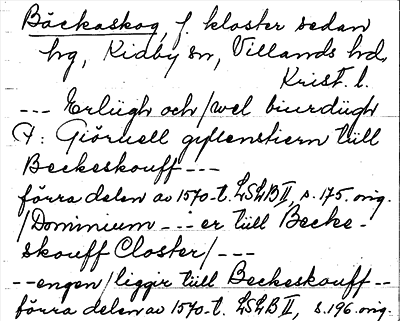 Bäckaskog, f. kloster sedan
hg, Kidby sn, Villands hd,
Krist. l.
--- Erlügh och/wel biurdügh
F: Giöruell gyllenstiern tüll
Beckeskouff ---
förra delen av 1570-t. LSLB II, s. 175. orig.
/Dominium --- er tüll Becke-
skouff Closter/ ---
--engen/liggir tüll Beckeskouff --
förra delen av 1570-t. LSLB II, s. 196. orig.